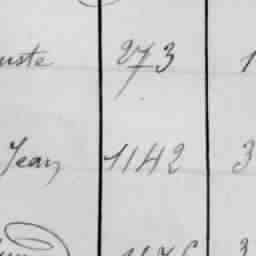 uste 273 1
Jean 1142 3